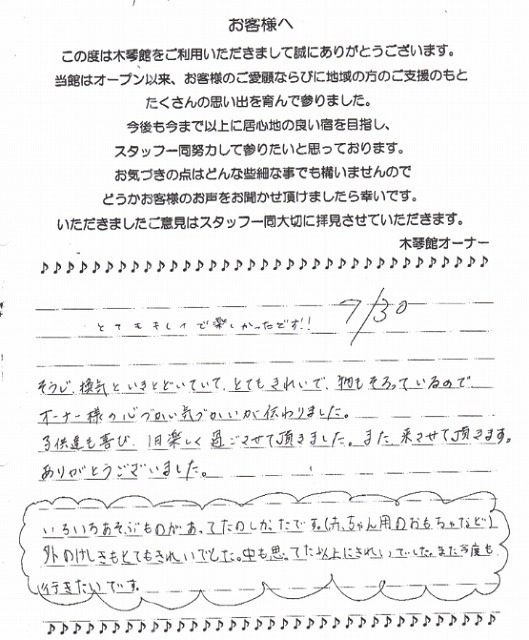 お客様へ
この度は木琴館をご利用いただきまして誠にありがとうございます。
当館はオープン以来、お客様のご愛顧ならびに地域の方のご支援のもと
たくさんの思い出を育んで参りました。
今後も今まで以上に居心地の良い宿を目指し、
スタッフ一同努力して参りたいと思っております。
お気づきの点はどんな些細な事でも構いませんので
どうかお客様のお声をお聞かせ頂けましたら幸いです。
いただきましたご意見はスタッフ一同大切に拝見させていただきます。
木琴館オーナー
♪♪♪♪♪♪♪♪♪♪♪♪♪♪♪♪♪♪♪♪♪♪♪♪♪♪♪♪♪♪♪♪
7/30
とてもキレイで楽しかったです!!
そうじ、換気といきとどいていて、とてもきれいで、物もそろっているので
オーナー様の心づかい気づかいが伝わりました。
子供達も喜び、1日楽しく過ごさせて頂きました。また来させて頂きます。
ありがとうございました。
いろいろあそぶものがあってたのしかったです。(赤ちゃん用のおもちゃなど)
外のけしきもとてもきれいでした。中も思ってた以上にきれいでした。また今度も
行きたいです。
♪♪♪♪♪♪♪♪♪♪♪♪♪♪♪♪♪♪♪♪♪♪♪♪♪♪♪♪♪♪♪♪